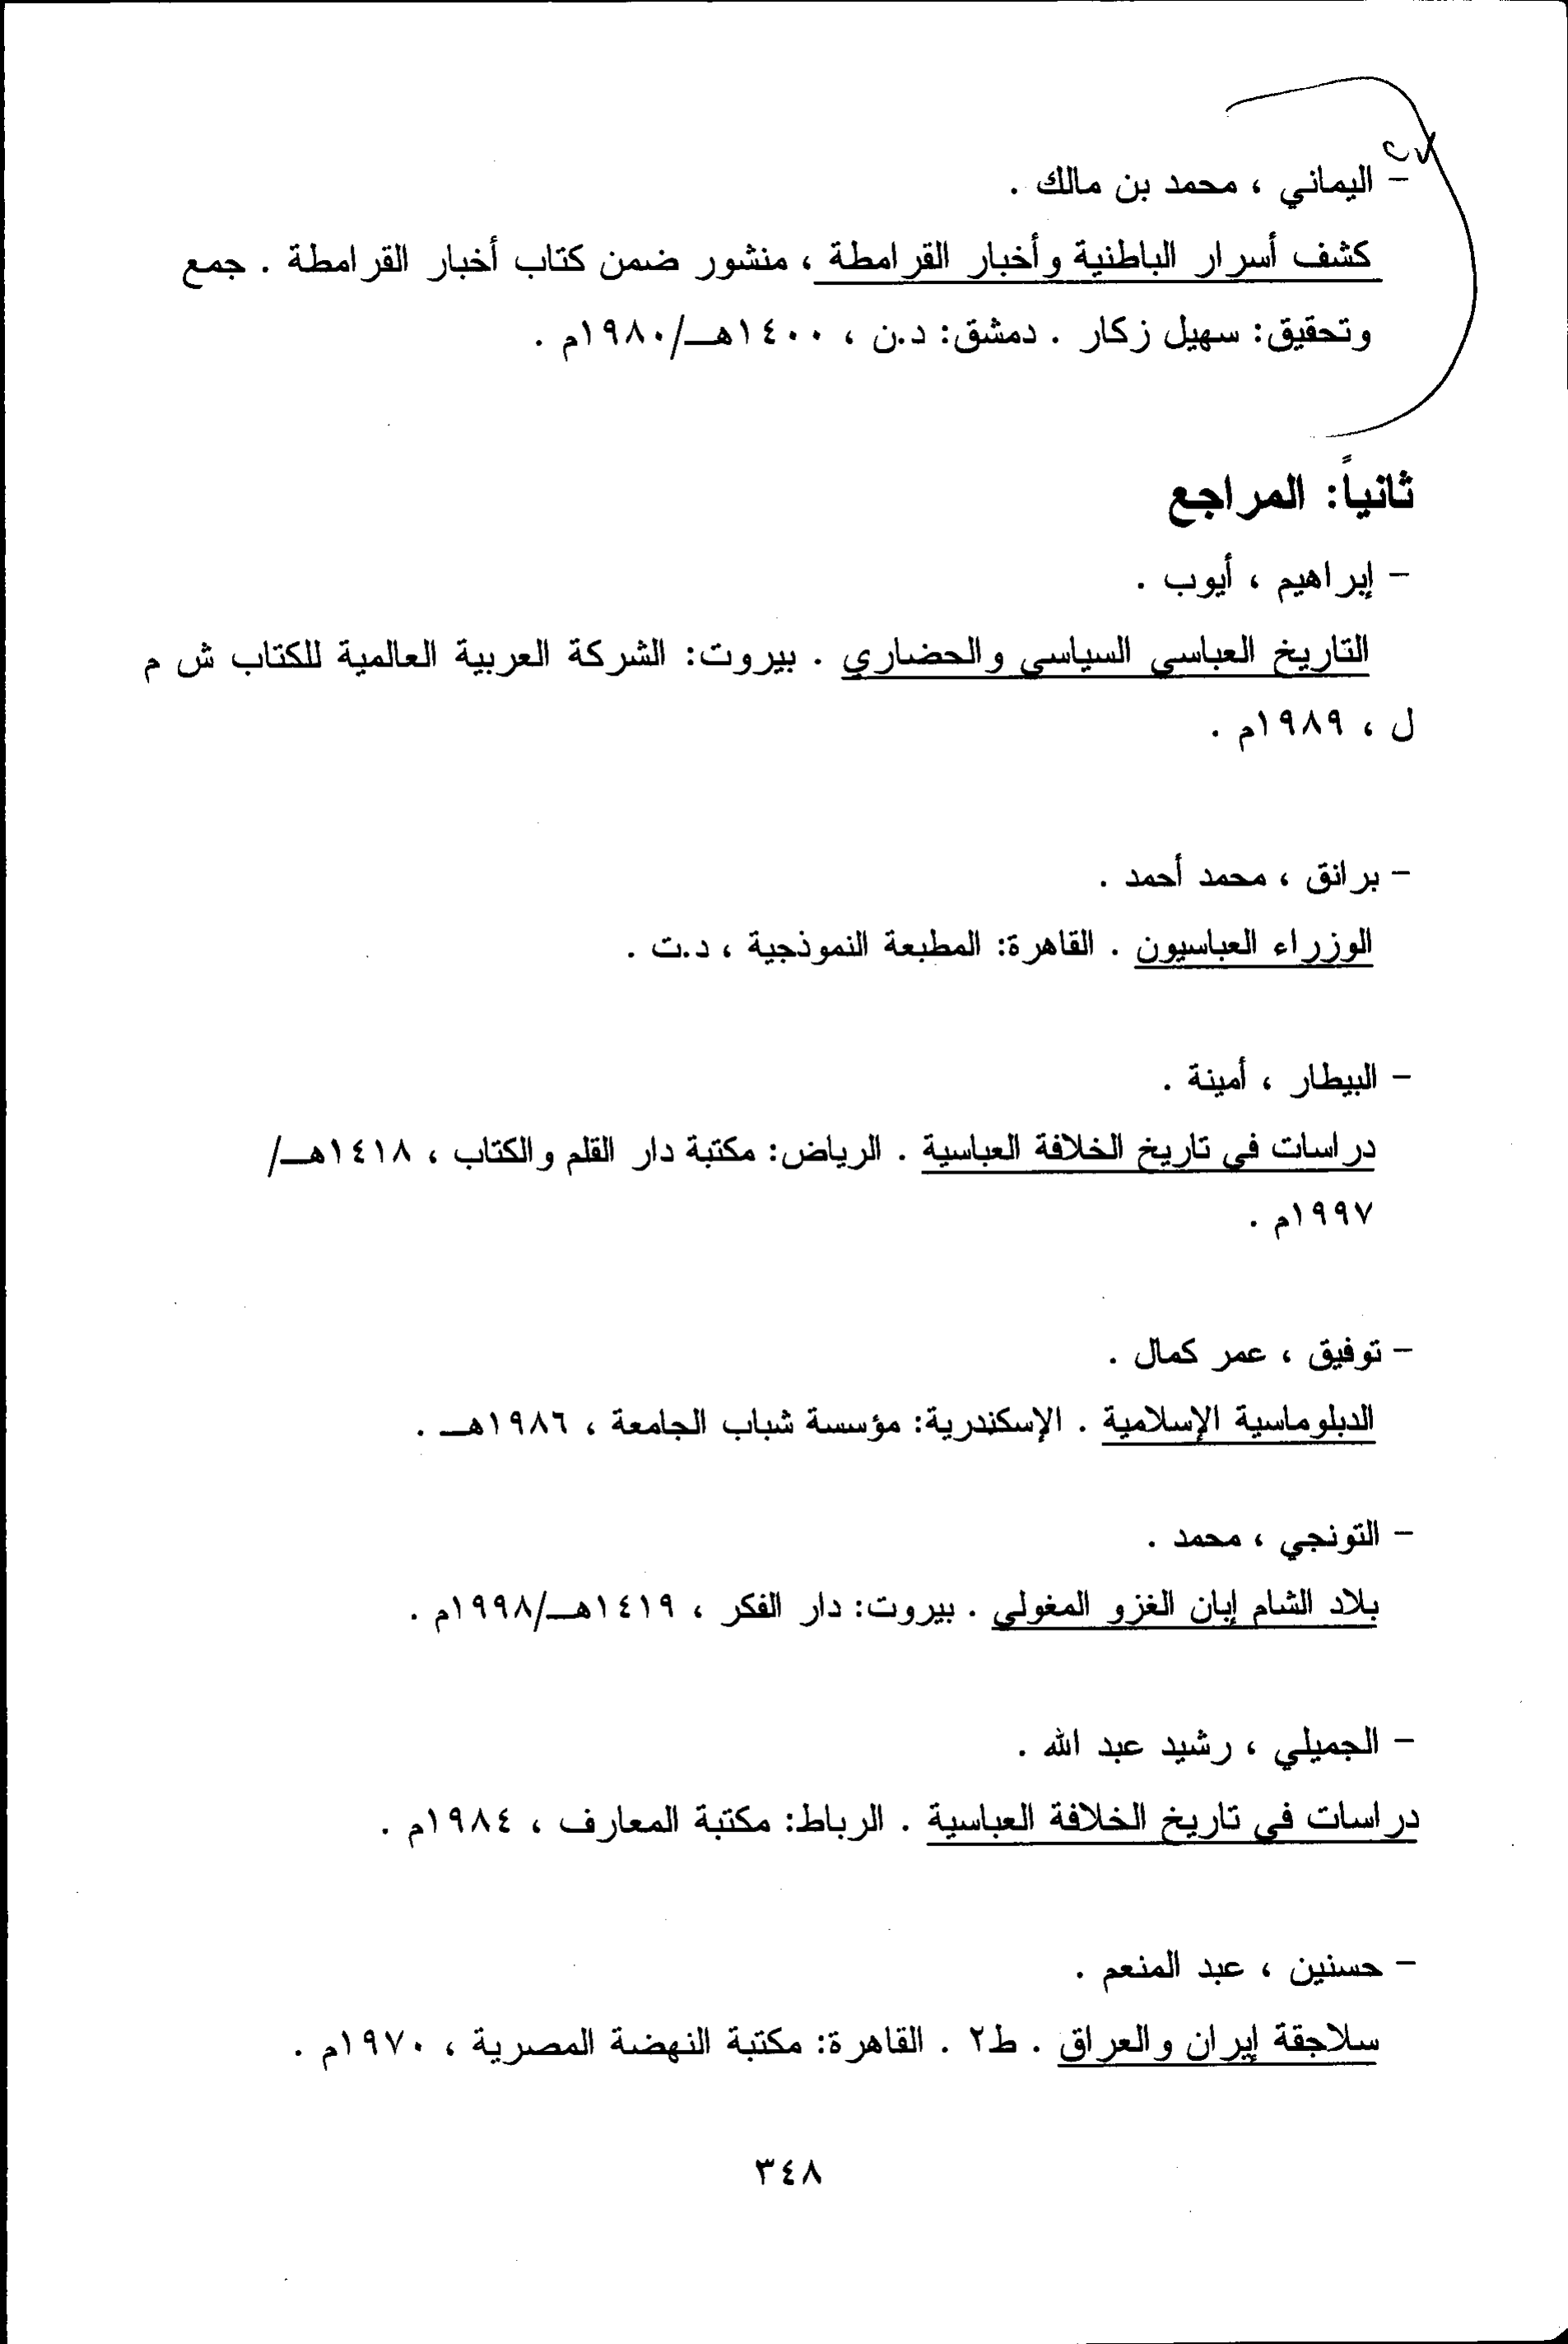 - اليماني ، محمد بن مالك .
كشف أسرار الباطنية وأخبار القرامطة ، منشور ضمن كتاب أخبار القرامطة . جمع
وتحقيق: سهيل زكار . دمشق: د.ن ، ١٤٠٠هـ/١٩٨٠م .
ثانياً: المراجع
- إبراهيم ، أيوب .
التاريخ العباسي السياسي والحضاري . بيروت: الشركة العربية العالمية للكتاب ش م
ل ، ١٩٨٩م .
- برانق ، محمد أحمد .
الوزراء العباسيون . القاهرة: المطبعة النموذجية ، د.ت .
- البيطار ، أمينة .
دراسات في تاريخ الخلافة العباسية . الرياض: مكتبة دار القلم والكتاب ، ١٤١٨هـ/
١٩٩٧م .
- توفيق ، عمر كمال .
الدبلوماسية الإسلامية . الإسكندرية: مؤسسة شباب الجامعة ، ١٩٨٦هـ .
- التونجي ، محمد .
بلاد الشام إبان الغزو المغولي . بيروت: دار الفكر ، ١٤١٩هـ/١٩٩٨م .
- الجميلي ، رشيد عبد الله .
دراسات في تاريخ الخلافة العباسية . الرباط: مكتبة المعارف ، ١٩٨٤م .
- حسنين ، عبد المنعم .
سلاجقة إيران والعراق . ط٢ . القاهرة: مكتبة النهضة المصرية ، ١٩٧٠م .
٣٤٨